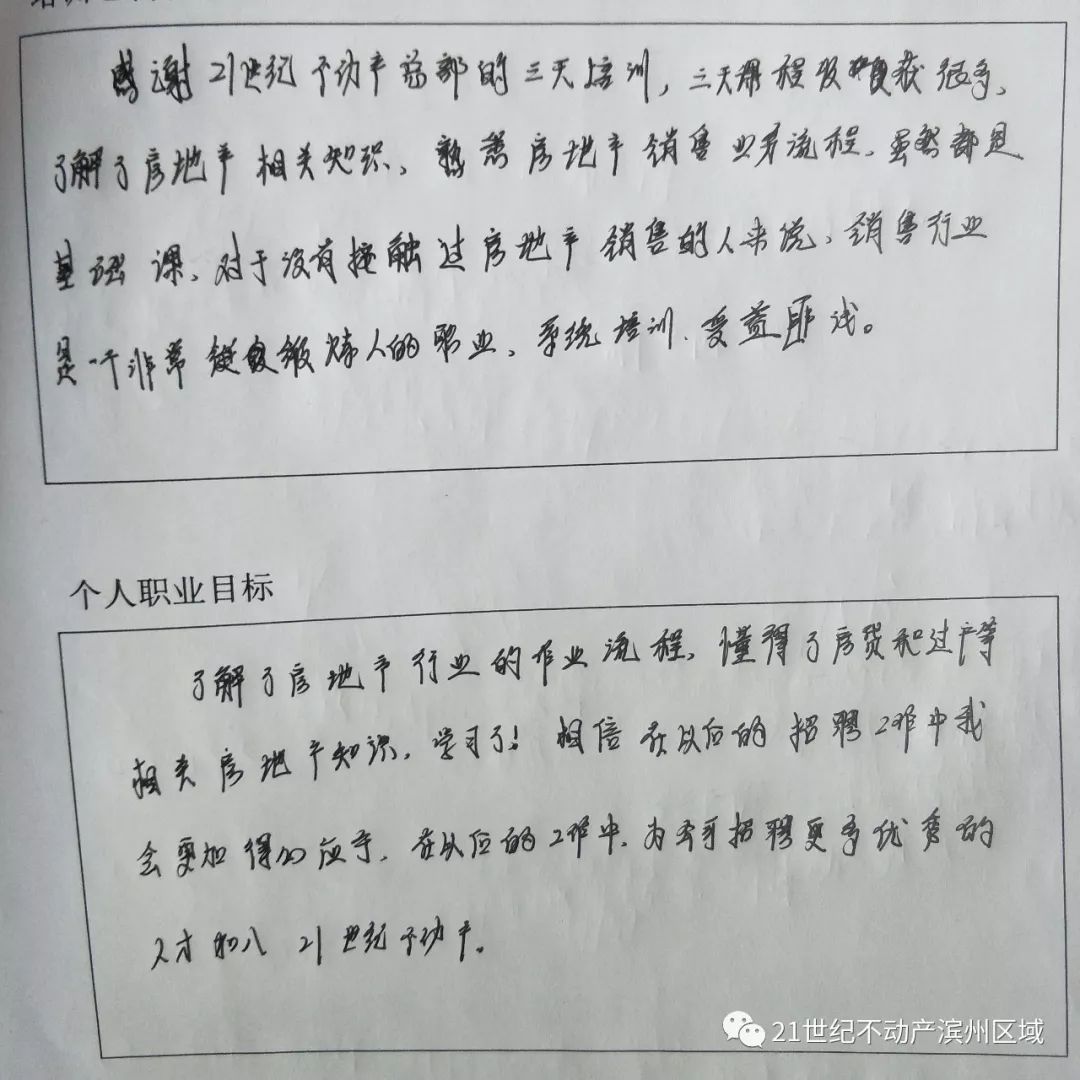 感谢21世纪不动产总部的三天培训，三天课程收获很多，
了解了房地产相关知识、熟悉房地产销售业务流程，虽然都是
基础课、对于没有接触过房地产销售的人来说，销售行业
是一个非常锻炼人的职业、系统培训、受益匪浅。
个人职业目标
了解了房地产行业的作业流程，懂得了房贷和过户等
相关房地产知识，学习了！相信在以后的招聘工作中我
会更加得心应手，在以后的工作中，为公司招聘更多优秀的
人才加入21世纪不动产。
21世纪不动产滨州区域